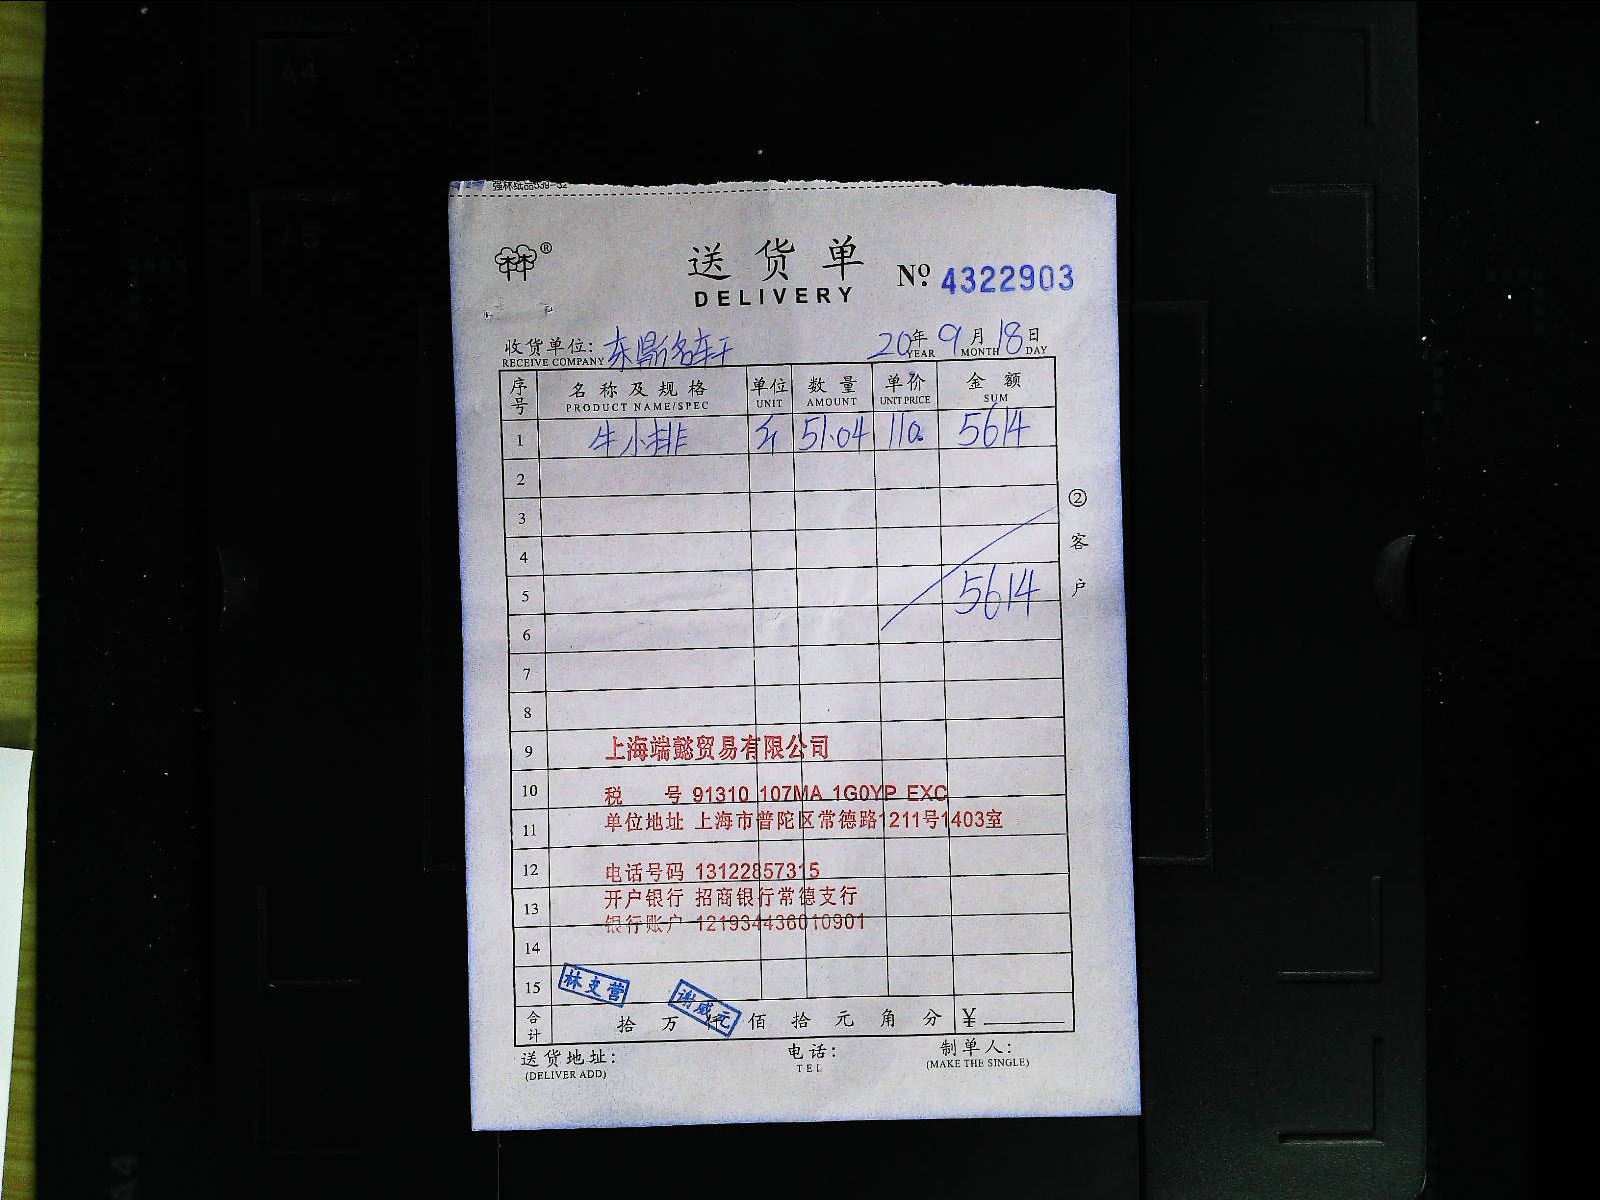 强林纸品539-32
林®
送货单
DELIVERY
No. 4322903
收货单位: 东鼎名轩 20年9月18日
RECEIVE COMPANY YEAR MONTH DAY
序号 名称及规格 单位 数量 单价 金额
PRODUCT NAME/SPEC UNIT AMOUNT UNIT PRICE SUM
1 牛小排 斤 51.04 110 5614
2
3
4
5 5614
6
7
8
9 上海端懿贸易有限公司
10 税 号 91310 107MA 1G0YP EXC
11 单位地址 上海市普陀区常德路1211号1403室
12 电话号码 13122857315
13 开户银行 招商银行常德支行
银行账户 121934436010901
14
15 林支营 谢威元
合计 拾 万 仟 佰 拾 元 角 分 ¥
送货地址: 电话: 制单人:
(DELIVER ADD) TEL (MAKE THE SINGLE)
②客户
A4
A5
A4